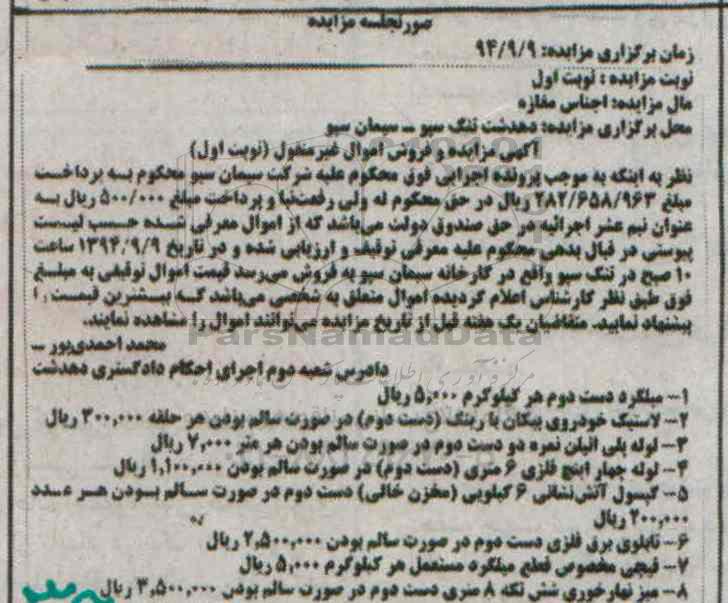 صورتجلسه مزایده
زمان برگزاری مزایده: ۹۴/۹/۹
نوبت مزایده: نوبت اول
مال مزایده: اجناس مغازه
محل برگزاری مزایده: دهدشت تنگ سپو ــ سیمان سپو
آگهی مزایده و فروش اموال غیرمنقول (نوبت اول)
نظر به اینکه به موجب پرونده اجرایی فوق محکوم علیه شرکت سیمان سپو محکوم به پرداخت
مبلغ ۲۸۲/۶۵۸/۹۶۳ ریال در حق محکوم له ولی رفعت‌نیا و پرداخت مبلغ ۵۰۰/۰۰۰ ریال به
عنوان نیم عشر اجرائیه در حق صندوق دولت می‌باشد که از اموال معرفی شده حسب لیست
پیوستی در قبال بدهی محکوم علیه معرفی توقیف و ارزیابی شده و در تاریخ ۱۳۹۴/۹/۹ ساعت
۱۰ صبح در تنگ سپو واقع در کارخانه سیمان سپو به فروش می‌رسد قیمت اموال توقیفی به مبلغ
فوق طبق نظر کارشناس اعلام گردیده اموال متعلق به شخصی می‌باشد که بیشترین قیمت را
پیشنهاد نمایید. متقاضیان یک هفته قبل از تاریخ مزایده می‌توانند اموال را مشاهده نمایند.
ParsNamadData
محمد احمدی‌پور ــ
دادرس شعبه دوم اجرای احکام دادگستری دهدشت
۱- میلگرد دست دوم هر کیلوگرم ۵,۰۰۰ ریال
۲- لاستیک خودروی پیکان با رینگ (دست دوم) در صورت سالم بودن هر حلقه ۳۰۰,۰۰۰ ریال
۳- لوله پلی اتیلن نمره دو دست دوم در صورت سالم بودن هر متر ۷,۰۰۰ ریال
۴- لوله چهار اینچ فلزی ۶ متری (دست دوم) در صورت سالم بودن ۱,۱۰۰,۰۰۰ ریال
۵- کپسول آتش‌نشانی ۶ کیلویی (مخزن خالی) دست دوم در صورت سالم بودن هر عدد
۲۰۰,۰۰۰ ریال
۶- تابلوی برق فلزی دست دوم در صورت سالم بودن ۲,۵۰۰,۰۰۰ ریال
۷- قیچی مخصوص قطع میلگرد مستعمل هر کیلوگرم ۵,۰۰۰ ریال
۸- میز نهارخوری شش تکه ۸ متری دست دوم در صورت سالم بودن ۳,۵۰۰,۰۰۰ ریال